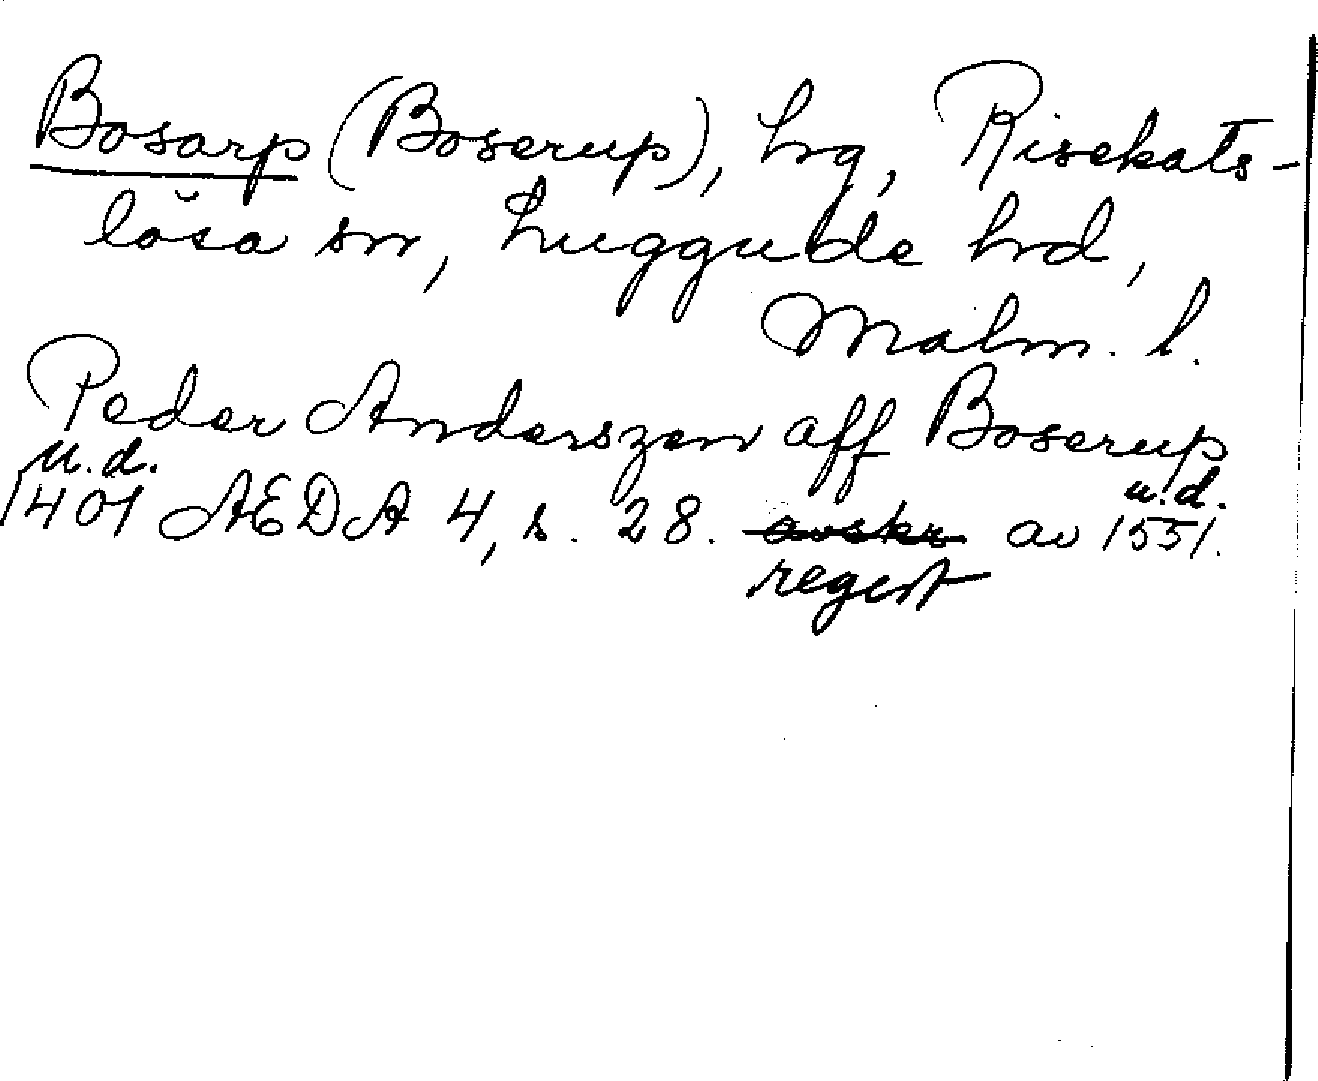 Bosarp (Boserup), hg, Risekats-
lösa sn, Luggude hd,
Malm. l.
Peder Anderszen aff Boserup
u.d. u.d.
1401 ÆDA 4, s. 28. avskr av 1551.
regest